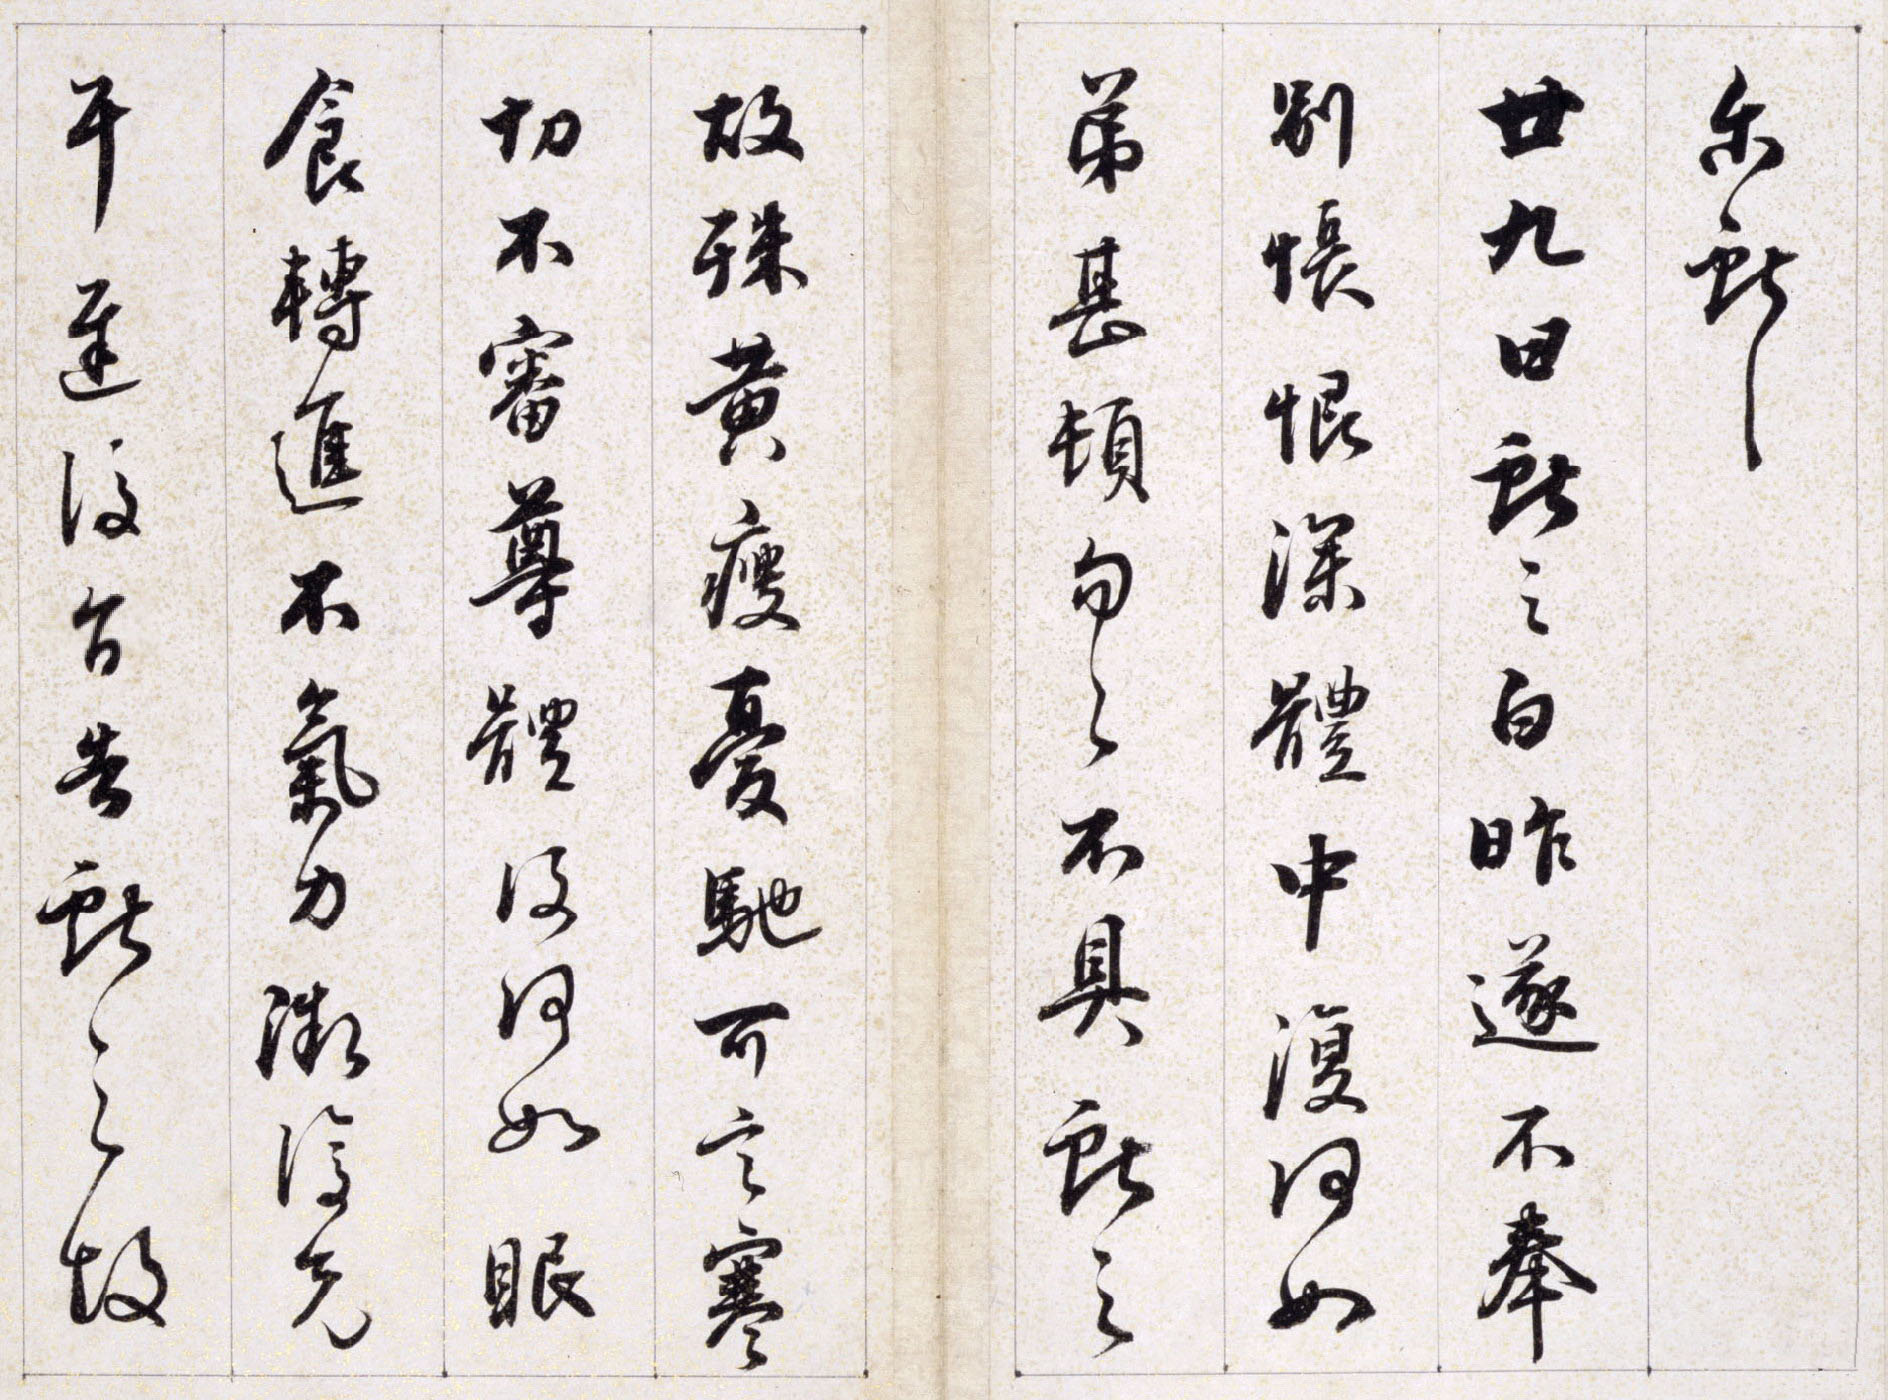 尔獻之
廿九日獻之白昨遂不奉
別悵恨深體中復何如
弟甚頓匆匆不具獻之
故殊黃瘦憂馳可言寒
切不審尊體復何如眼
食轉進不氣力漸復充
耳遲復旨告獻之故